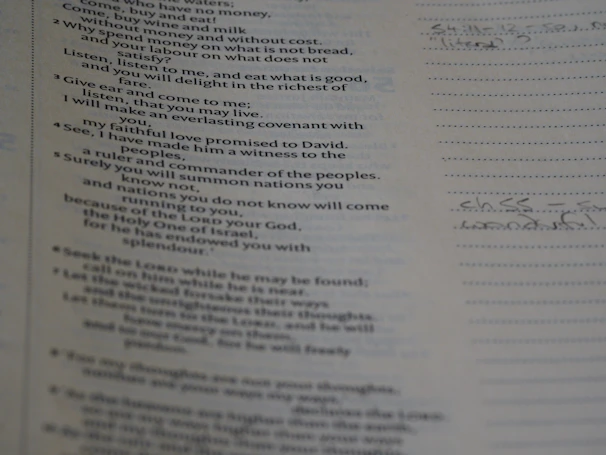 waters;
who have no money,
come, buy and eat!
Come, buy wine and milk
without money and without cost.
2 Why spend money on what is not bread,
and your labour on what does not
satisfy?
Listen, listen to me, and eat what is good,
and you will delight in the richest of
fare.
3 Give ear and come to me;
listen, that you may live.
I will make an everlasting covenant with
you,
my faithful love promised to David.
4 See, I have made him a witness to the
peoples,
a ruler and commander of the peoples.
5 Surely you will summon nations you
know not,
and nations you do not know will come
running to you,
because of the LORD your God,
the Holy One of Israel,
for he has endowed you with
splendour.'
6 Seek the LORD while he may be found;
call on him while he is near.
7 Let the wicked forsake their ways
and the unrighteous their thoughts.
Let them turn to the LORD, and he will
have mercy on them,
and to our God, for he will freely
pardon.
8 'For my thoughts are not your thoughts,
neither are your ways my ways,'
declares the LORD.
9 'As the heavens are higher than the earth,
so are my ways higher than your ways
and my thoughts than your thoughts.
ch 55 –
wonderful!